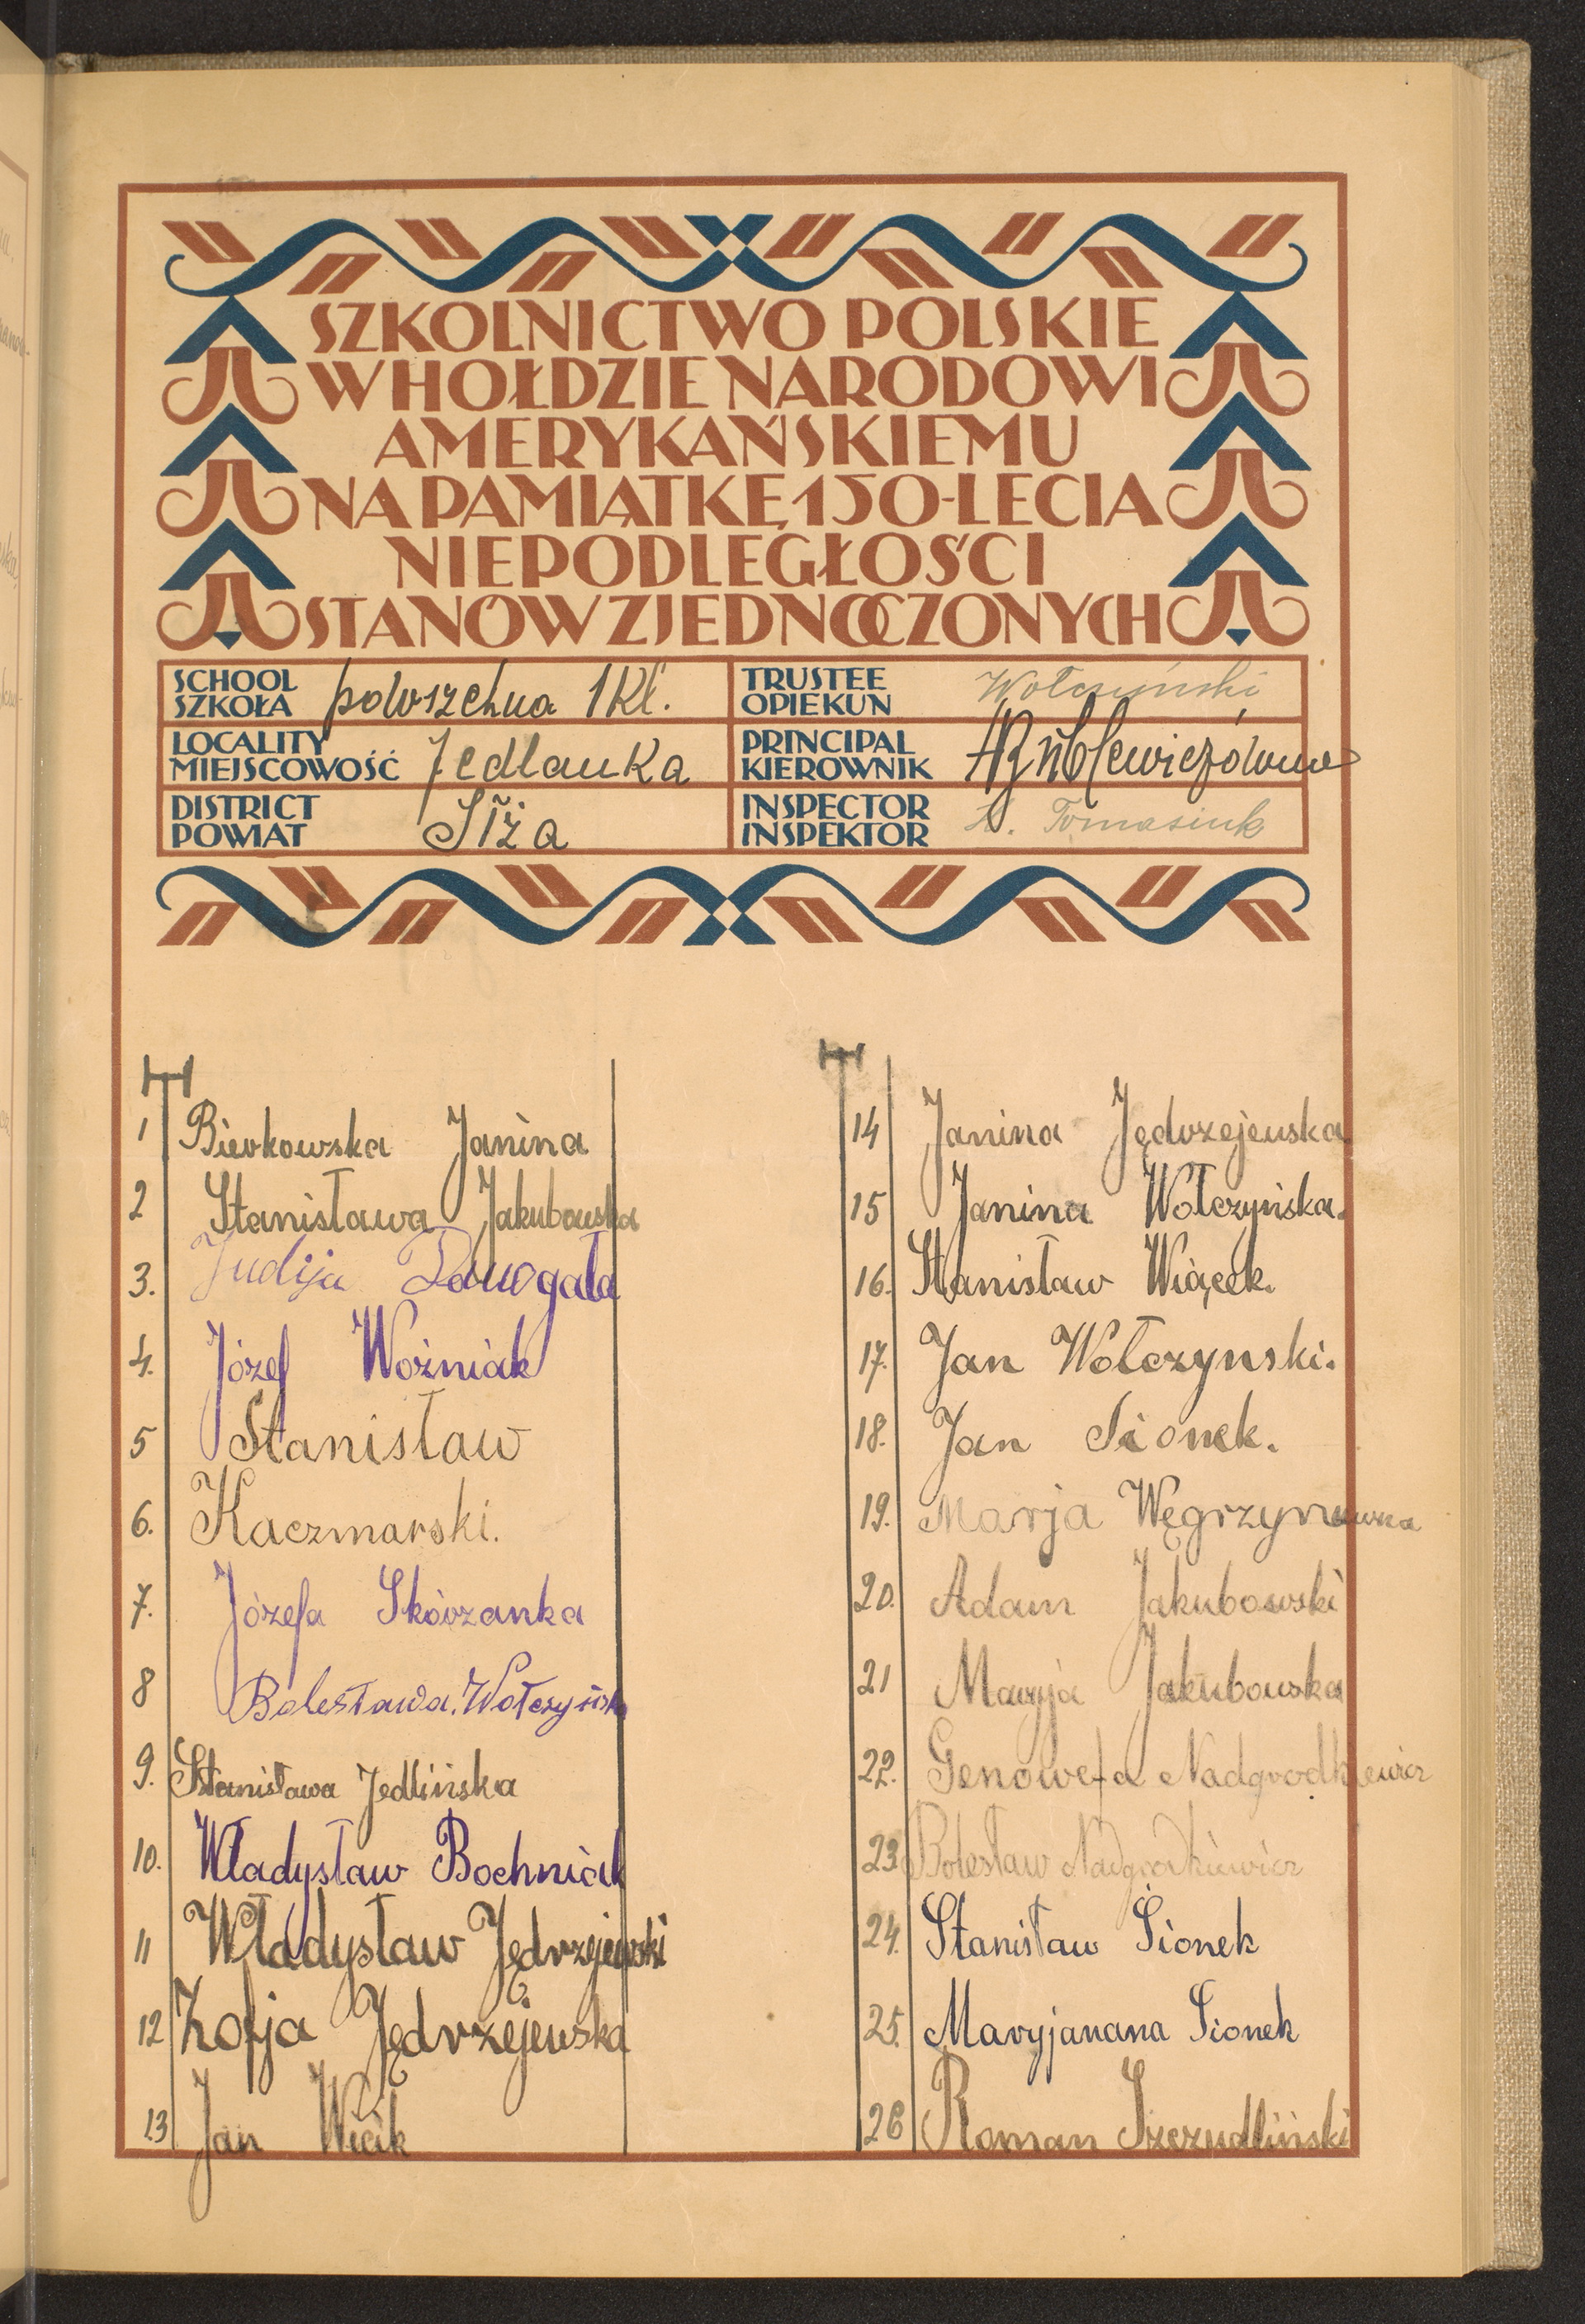 SZKOLNICTWO POLSKIE
W HOŁDZIE NARODOWI
AMERYKAŃSKIEMU
NA PAMIĄTKĘ 150-LECIA
NIEPODLEGŁOŚCI
STANÓW ZJEDNOCZONYCH
SCHOOL
SZKOŁA powszechna 1 Kl.
TRUSTEE
OPIEKUN Wołczyński
LOCALITY
MIEJSCOWOŚĆ Jedlanka
PRINCIPAL
KIEROWNIK
DISTRICT
POWIAT Iłża
INSPECTOR
INSPEKTOR Tomasiuk
1 Bierkowska Janina
2 Stanisława Jakubowska
3. Judija
4. Józef Woźniak
5 Stanisław
6. Kaczmarski.
7. Józefa Skórzanka
8 Bolesława. Wołczyńska
9. Stanisława Jedlińska
10. Władysław Bochniak
11 Władysław Jędrzejewski
12 Zofja Jędrzejewska
13 Jan Wicik
14 Janina Jędrzejewska
15 Janina Wołczyńska.
16. Stanisław Wiącek.
17. Jan Wołczynski.
18. Jan Sionek.
19. Marja Węgrzynowska
20. Adam Jakubowski
21 Maryja Jakubowska
22. Genowefa Nadgrodkiewicz
23 Bolesław Nadgrodkiewicz
24. Stanisław Sionek
25. Maryjanana Sionek
26 Roman Szczudliński